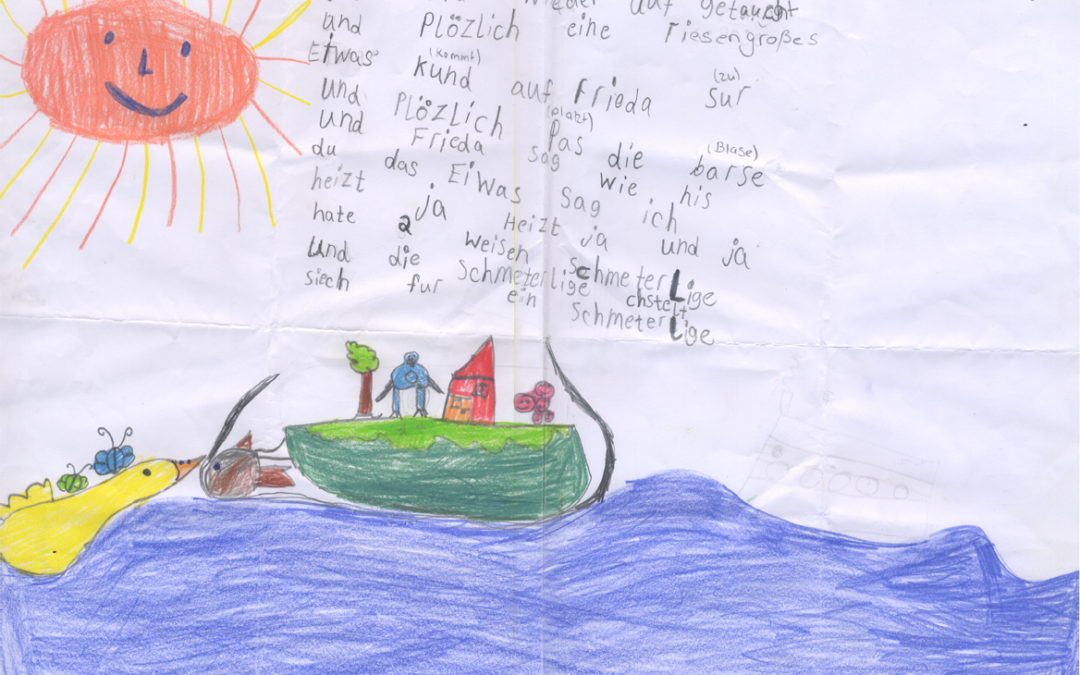 wieder auf getaucht
und Plözlich eine riesengroßes
(Kommt) (zu)
Etwas kund auf Frieda sur
(plakt) (Blase)
und Plözlich Pas die barse
und Frieda sag wie his
du das Etwas sag ich
heizt ja Heizt ja und ja
hate 2 weisen SchmeterLige
und die Schmeterlige chstelt
siech fur ein SchmeterLige